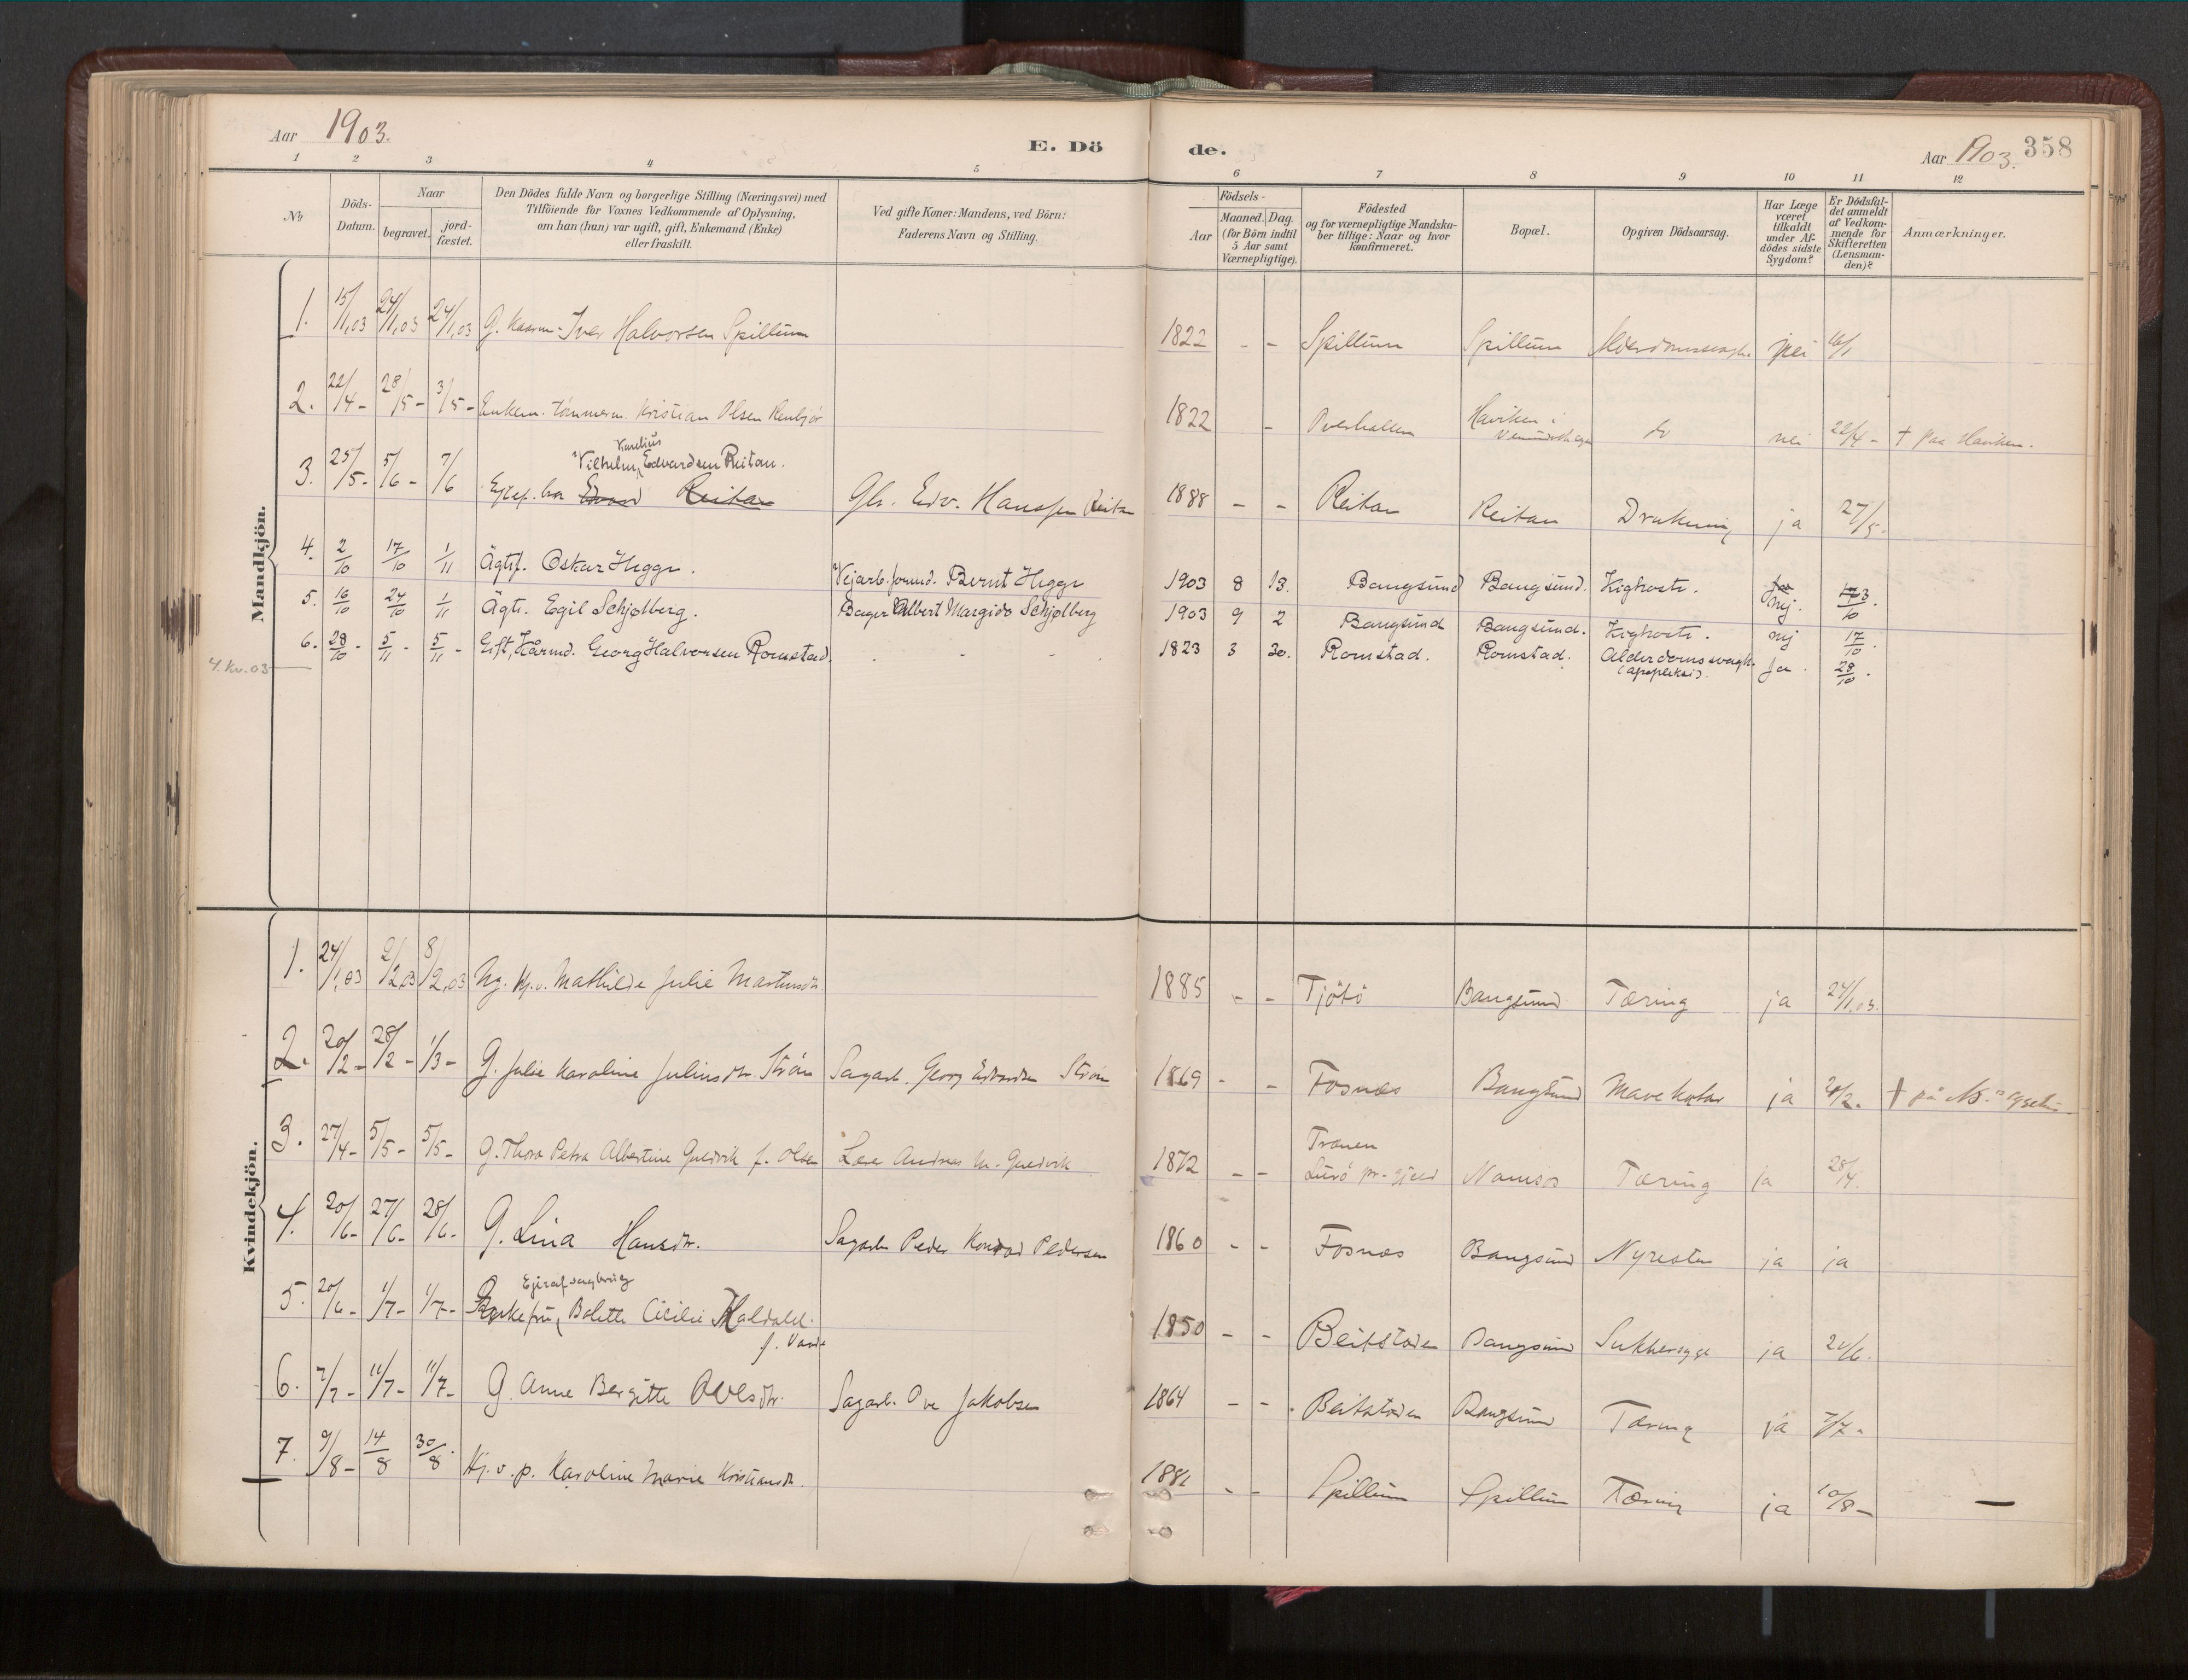 Aar 1903.
E. Dö
1 2 3 4 5
No
Döds-Datum.
Naar
begravet.
jord-fæstet.
Den Dödes fulde Navn og borgerlige Stilling (Næringsvei) med
Tilföiende for Voxnes Vedkommende af Oplysning,
om han (hun) var ugift, gift, Enkemand (Enke)
eller fraskilt.
Ved gifte Koner: Mandens, ved Börn:
Faderens Navn og Stilling.
de.
Aar 1903.
358
6 7 8 9 10 11 12
Aar
Födsels-
Maaned. Dag.
(for Börn indtil
5 Aar samt
Værnepligtige).
Födested
og for værnepligtige Mandska-
ber tillige: Naar og hvor
konfirmeret.
Bopæl.
Opgiven Dödsaarsag.
Har Læge
været
tilkaldt
under Af-
dödes sidste
Sygdom?
Er Dödsfal-
det anmeldt
af Vedkom-
mende for
Skifteretten
(Lensman-
den)?
Anmærkninger.
Mandkjön.
1. 15/1,03 24/1,03 24/1,03 G. Kaarm. Iver Halvorsen Spillum 1822 - - Spillum Spillum nei 16/1
2. 22/4- 28/5- 3/5- Enkem. tömmerm. Kristian Olsen 1822 - Overhallen Haviken i do nei 22/4- † paa Haviken.
Karelius
Vilhelm Edvardsen Reitan.
3. 25/5- 5/6- 7/6 Reitan Gbr. Edv. Hanssen Reitan 1888 - - Reitan Reitan Drukning ja 27/5.
4. 2/10 17/10 1/11 Ägtef. Oskar Hegge. Vejarb.formd. Bernt Hegge 1903 8 13. Bangsund Bangsund. Kighoste. Nej. 3/10.
5. 16/10 24/10 1/11 Ägte. Egil Schjølberg. Bager Albert Margido Schjølberg 1903 9 2 Bangsund Bangsund. Kighoste. Nej 17/10
6. 28/10- 5/11- 5/11- Gift, Kårmd. Georg Halvorsen Romstad. - - - 1823 3 30. Romstad. Romstad. Alderdomssvagh. (apopleksi). Ja. 28/10.
4. Kv. 03
Kvindekjön.
1. 24/1,03 2/2,03 8/2,03 Ug. Mathilde Julie Martinsdtr. 1885 - - Tjötö Bangsund Tæring ja 24/1,03.
2. 20/2- 28/2- 1/3- G. Julie Karoline Juliusdtr. Ström Sagarb. Georg Edvardsen Ström 1869 - - Fosnæs Bangsund Mavekatar ja 20/2. † på
3. 27/4- 5/5- 5/5- G. Thora Petra Albertine f. Olsen Lærer Andreas M. 1872 - - Trænen
Lurö pr.gjeld Namsos Tæring ja 28/4.
4. 20/6- 27/6- 28/6- G. Lina Hansdtr. Sagarb. Peder Konrad Pedersen 1860 - - Fosnæs Bangsund ja ja
Ejer af sagbrug
5. 20/6- 1/7- 1/7- Bolette Cicilie Haldahl. 1850 - - Beitstaden Bangsund Sukkersyge ja 20/6.
6. 7/7- 11/7- 11/7- G. Anne Bergitte Olesdtr. Sagarb. Ove Jakobsen 1864 - - Beitstaden Bangsund Tæring ja 7/7-
7. 9/8- 14/8 30/8. Karoline Marie Kristiansdtr. 1881 - - Spillum Spillum Tæring ja 10/8-